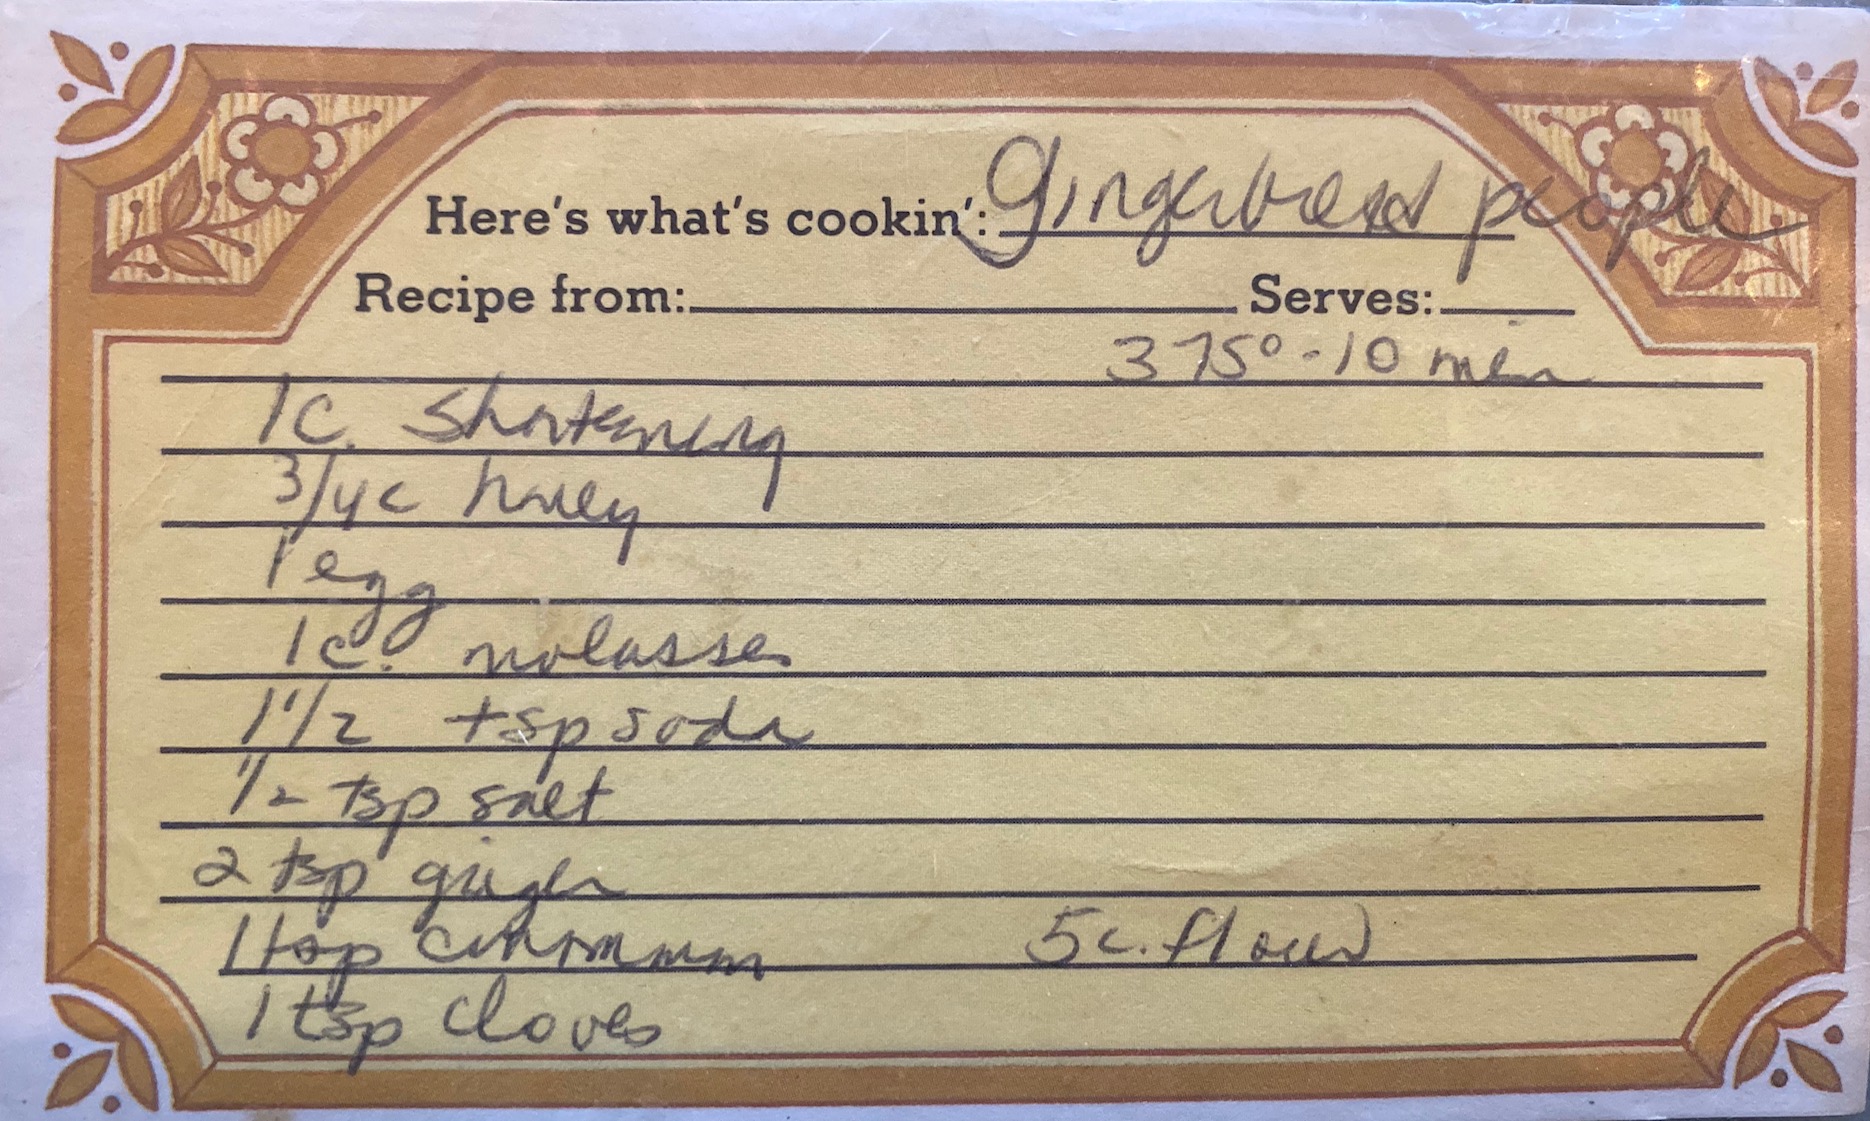 Here's what's cookin': Gingerbread people
Recipe from: Serves:
375° - 10 min
1c. Shortening
3/4c honey
1 egg
1c. molasses
1 1/2 tsp soda
1/2 tsp salt
2 tsp ginger
1 tsp cinnamon 5c. flour
1 tsp cloves